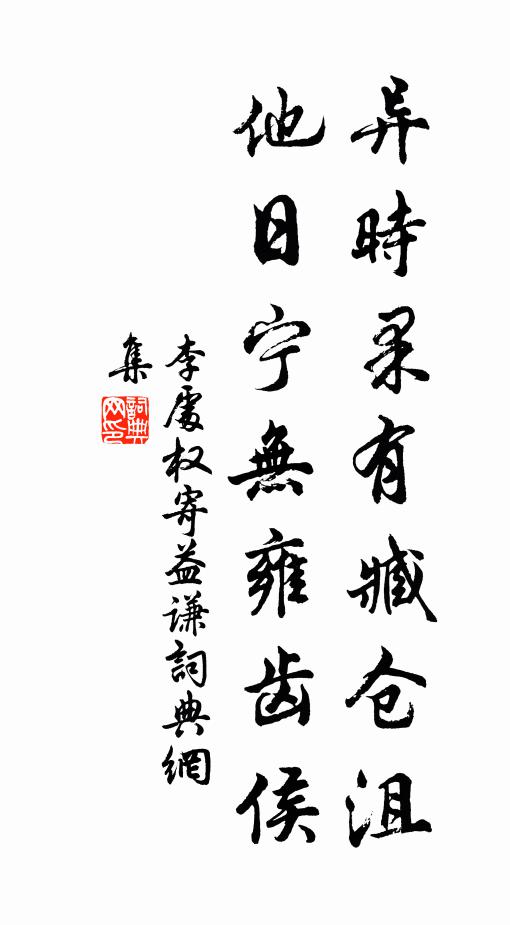 异時果有臧仓沮
他日宁無雍齿侯
李處权寄益谦詞典網
集
詞典网印